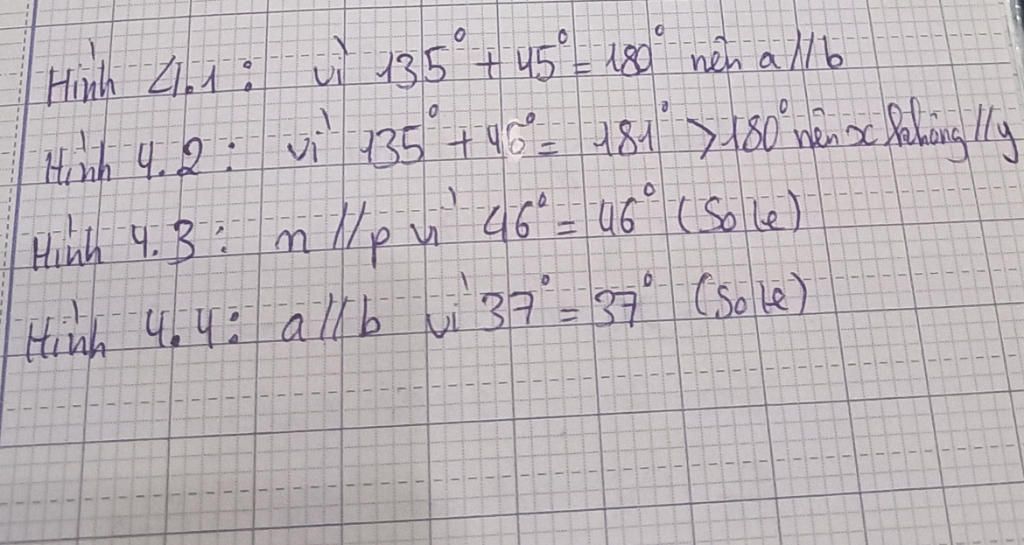 Hình 4.1: vì 135° + 45° = 180° nên a//b
Hình 4.2: vì 135° + 46° = 181° > 180° nên x không // y
Hình 4.3: n // p vì 46° = 46° (So le)
Hình 4.4: a//b vì 37° = 37° (So le)